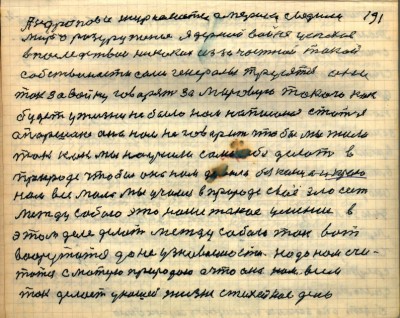 191
Андроповы журналисты америка сведила
миро разоружение ядерной войне успокое
в последствии никаких из за частной такой
собственности сами генералы трусятся они
так за войну говорят за мировую такого как
будет у жизни не было нам написана статья
а порешано она нам не говорит чтобы мы жили
так как мы научили сами себя делать в
природе чтобы она нам давала без конца и нужно
нам все мало мы учили в природе своё зло сеет
между собою это наше такое умение в
этом деле делить между собою так вот
вооружатся до не узноваемости. надо нам счи-
татся с матерью природою а что она нам всем
так делает у нашей жизни стихейное день